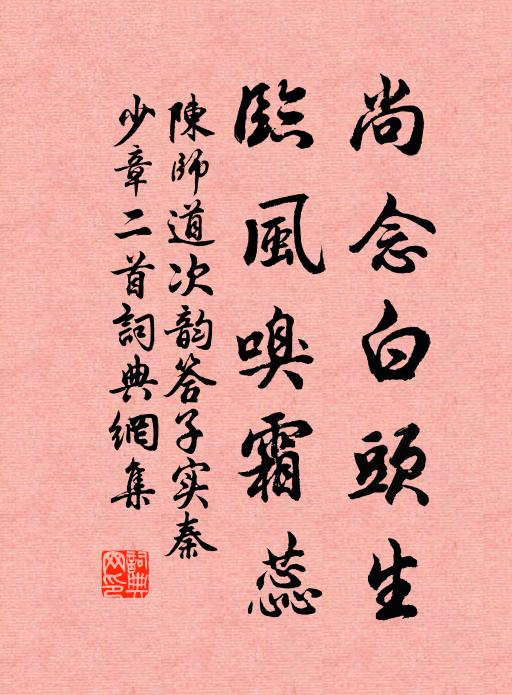 尚念白頭生
臨風嗅霜蕊
陳師道次韵答子实秦
少章二首詞典網集
詞典網印